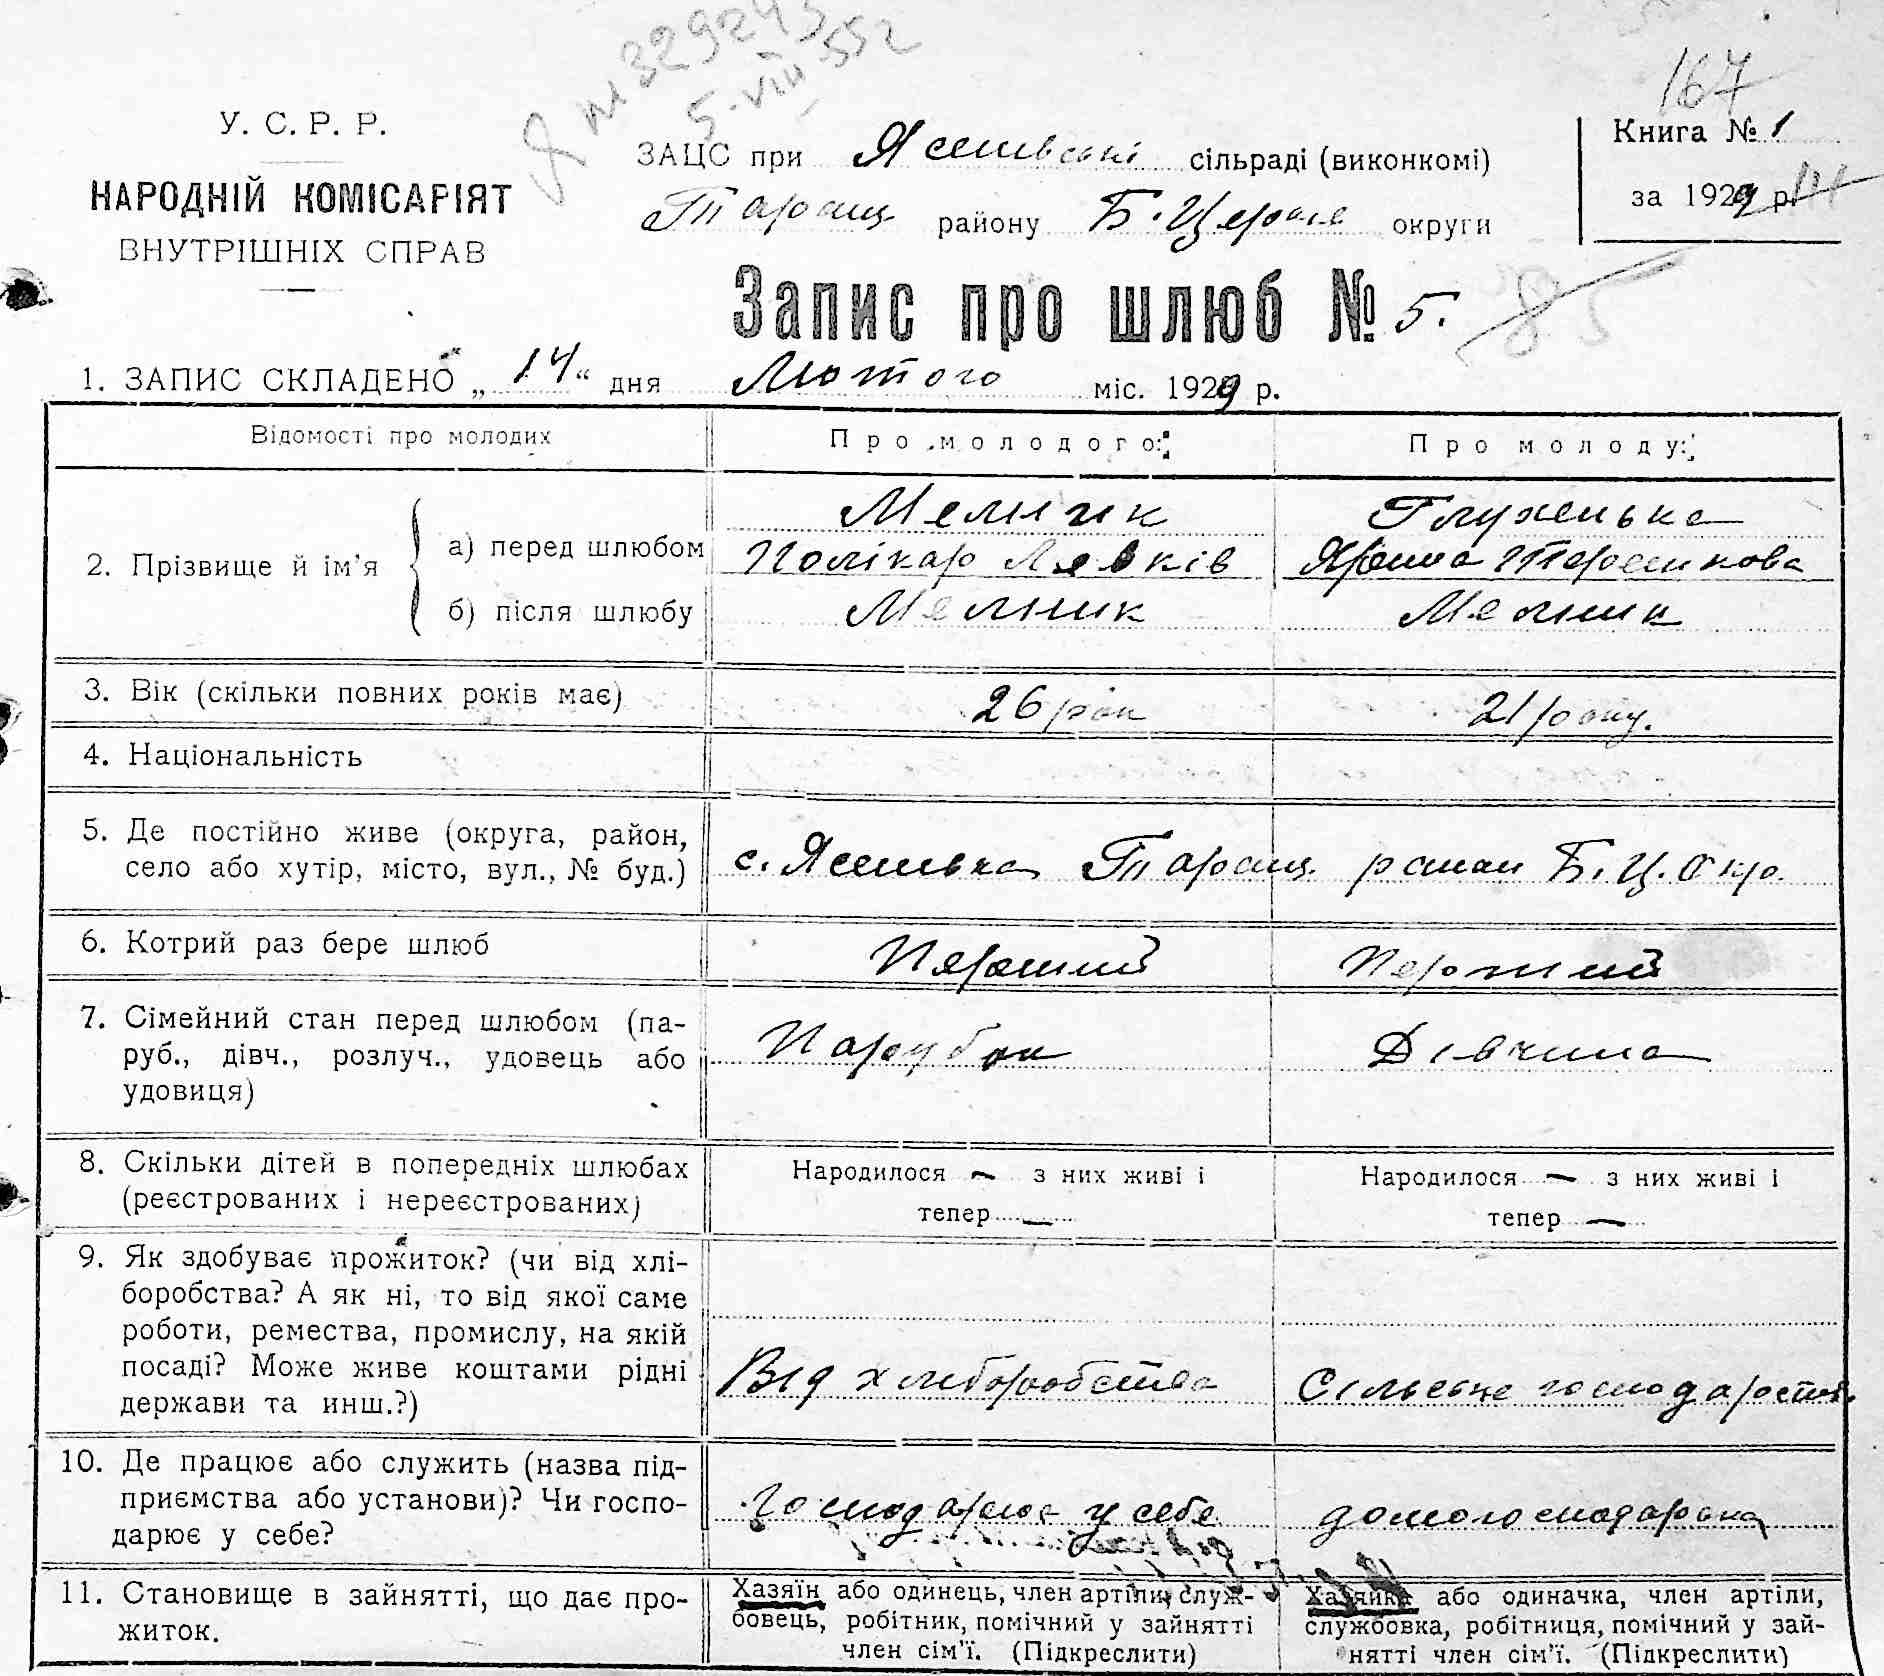 167
Я № 329243
5-VIII-55 г
У. С. Р. Р.
НАРОДНІЙ КОМІСАРІЯТ
ВНУТРІШНІХ СПРАВ
ЗАЦС при Ясенівські сільраді (виконкомі)
Таращ району Б. Церкв округи
Книга № 1
за 1929 р.
Запис про шлюб № 5.
85
1. ЗАПИС СКЛАДЕНО „14“ дня Лютого міс. 1929 р.
Відомості про молодих Про молодого: Про молоду:
2. Прізвище й ім'я
а) перед шлюбом Мелник Глуженька
Полікар Левків Ярина Тарасикова
б) після шлюбу Мелник Мелник
3. Вік (скільки повних років має) 26 рок 21 року.
4. Національність
5. Де постійно живе (округа, район,
село або хутір, місто, вул., № буд.) с. Ясенівка Таращ. району Б. Ц. Окр.
6. Котрий раз бере шлюб Перший Перший
7. Сімейний стан перед шлюбом (па-
руб., дівч., розлуч., удовець або
удовиця) Парубок Дівчина
8. Скільки дітей в попередніх шлюбах
(реєстрованих і нереєстрованих)
Народилося — з них живі і
тепер —
Народилося — з них живі і
тепер —
9. Як здобуває прожиток? (чи від хлі-
боробства? А як ні, то від якої саме
роботи, ремества, промислу, на якій
посаді? Може живе коштами рідні
держави та инш.?)
Від хліборобства Сільське господарство
10. Де працює або служить (назва під-
приємства або установи)? Чи госпо-
дарює у себе?
Господарює у себе домогосподарька
11. Становище в зайнятті, що дає про-
житок.
Хазяїн або одинець, член артілі, служ-
бовець, робітник, помічний у зайнятті
член сім'ї. (Підкреслити)
Хазяйка або одиначка, член артіли,
службовка, робітниця, помічний у зай-
нятті член сім'ї. (Підкреслити)